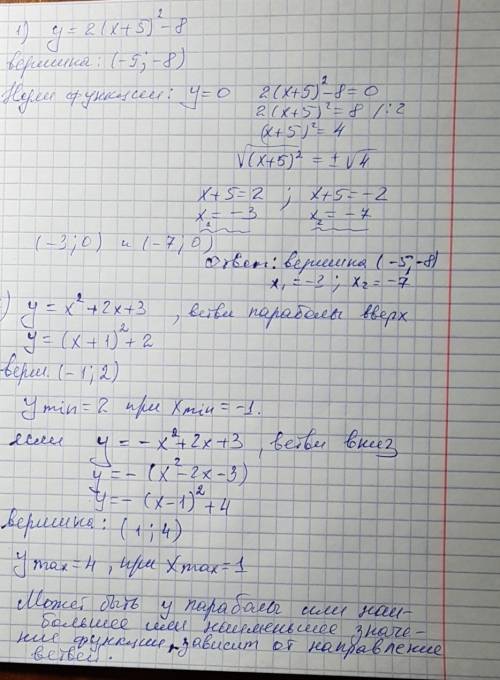 1) y = 2(x+5)² - 8
вершина: (-5; -8)
Нули функции: y=0 2(x+5)² - 8 = 0
2(x+5)² = 8 /:2
(x+5)² = 4
√(x+5)² = ±√4
x+5=2 ; x+5=-2
x₁ = -3 x₂ = -7
(-3; 0) и (-7; 0)
Ответ: вершина (-5; -8)
x₁=-3 ; x₂=-7
) y = x² + 2x + 3 , ветви параболы вверх
y = (x+1)² + 2
верш. (-1; 2)
y min = 2 при x min = -1.
если y = -x² + 2x + 3 , ветви вниз
y = - (x² - 2x - 3)
y = - (x-1)² + 4
вершина: (1; 4)
y max = 4 , при x max = 1
Может быть у параболы или наи-
большее или наименьшее значе-
ние функции, зависит от направление
ветвей.